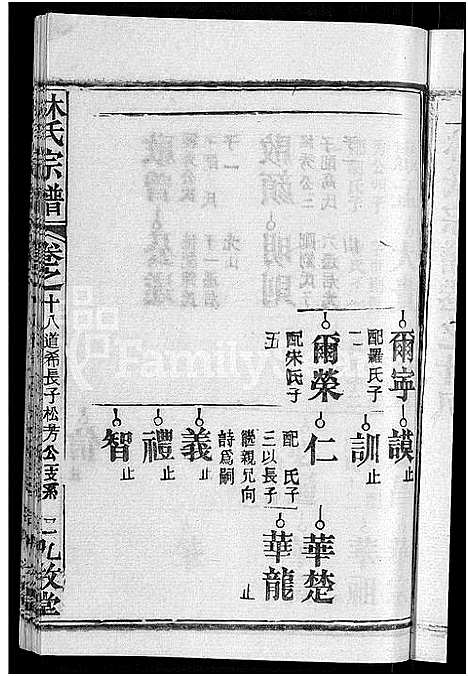 林氏宗譜
卷之十八道希長子松芳公支系
二
九牧堂
爾寧
配羅氏子
二
謨
止
訓
止
爾榮
配宋氏子
五
仁
配 氏子
三以長子
繼親兄向
詩爲嗣
華楚
華龍
止
義
止
禮
止
智
止